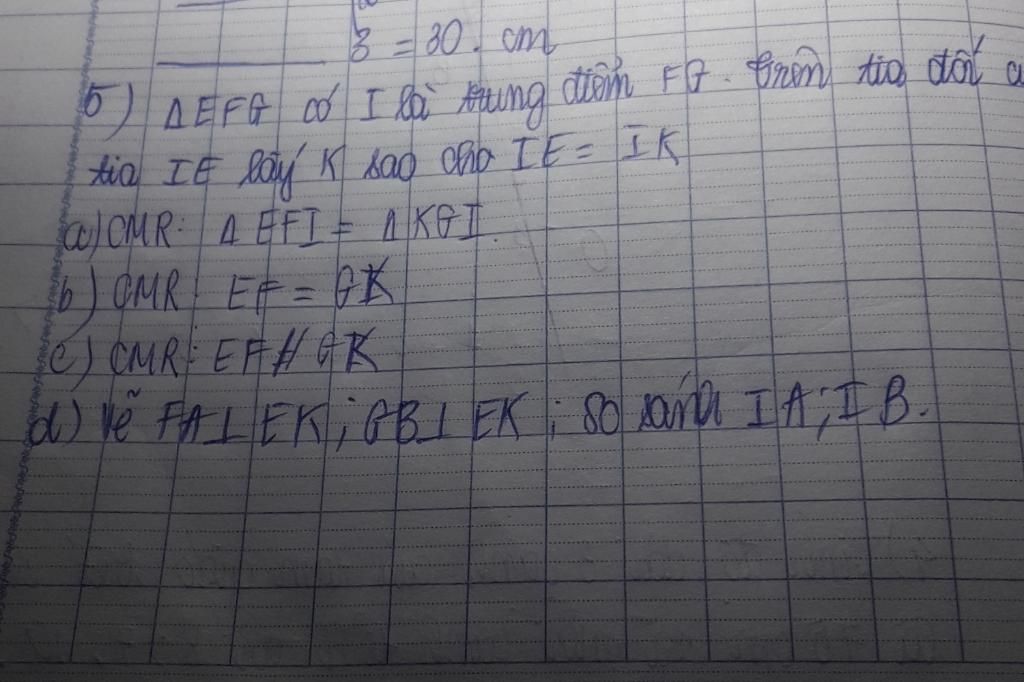 3 = 30. cm
5) ∆EFG có I là trung điểm FG. trên tia đối
tia IE lấy K sao cho IE = IK
a) CMR: ∆ EFI = ∆ KGI.
b) CMR: EF = GK
c) CMR: EF // GK
d) Vẽ FA⊥EK; GB⊥EK; so sánh IA; IB.